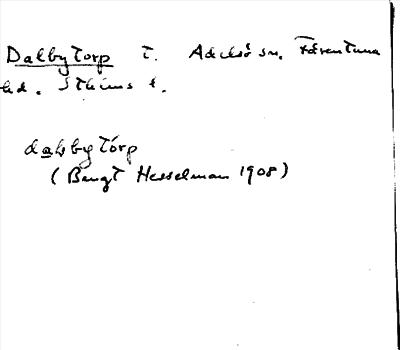 Dalbytorp t. Adelsö sn. Färentuna
hd. Sthlms l.
dalbytórp
(Bengt Hesselman 1908)